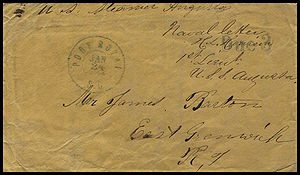 U.S. Steamer Augusta
Naval letter
1st Lieut
U.S.S. Augusta
PORT ROYAL
JAN
S.C.
Mr James Barton
East Greenwich
R.I